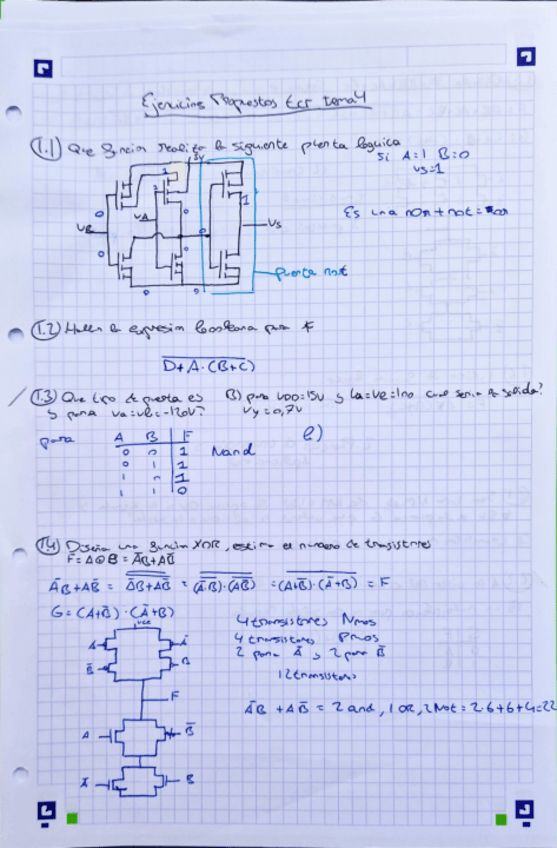 Ejercicios Propuestos tema 4
1.1) Que funcion realiza la siguiente puerta logica
si A=1 B=0
vs=1
5v
1
0
VA
VB
VS
Es una nor + not = or
puerta not
1.2) Hallen la expresion booleana para F
D+A·(B+C)
1.3) Que tipo de puerta es B) para VDD=15V y cual seria la salida?
y para
Vy=0,7v
para A B F
0 0 1 Nand
0 1 1
1 0 1
1 1 0
1.4) Diseña una funcion XOR, estima el numero de transistores
F=A⊕B=A̅B+AB̅
A̅B+AB̅ = A̅B+AB̅ = (A̅B)·(AB̅) = (A+B̅)·(A̅+B) = F
G=(A+B̅)·(A̅+B)
vcc
A A̅
B̅ B
F
A B̅
A̅ B
4 transistores Nmos
4 transistores Pmos
2 para A̅ y 2 para B̅
12 transistores
A̅B + AB̅ = 2 and, 1 OR, 2 Not = 2·6+6+4=22